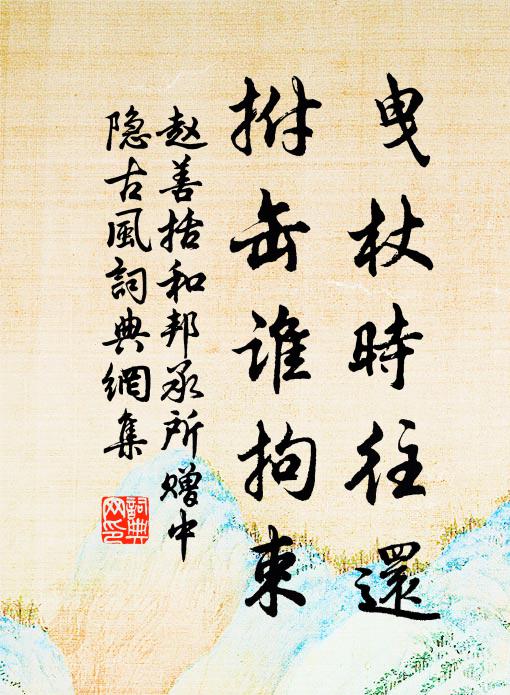 曳杖時往還
拊缶谁拘束
赵善括和邦承所赠中
隐古風詞典網集
詞典網印